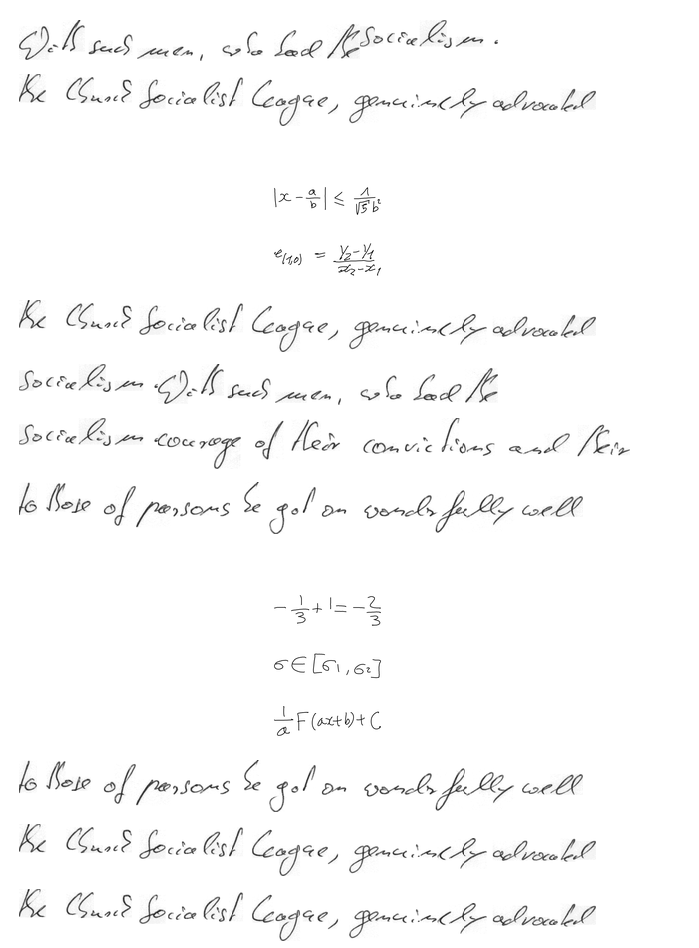 With such men, who had the Socialism.
the Church Socialist League, genuinely advocated
|x - a/b| ≤ 1/(√5 b²)
e_(1,0) = (y₂-y₁)/(x₂-x₁)
the Church Socialist League, genuinely advocated
Socialism. With such men, who had the
Socialism courage of their convictions and their
to those of persons he got on wonderfully well
-1/3 + 1 = -2/3
σ ∈ [σ₁, σ₂]
1/a F(ax+b) + C
to those of persons he got on wonderfully well
the Church Socialist League, genuinely advocated
the Church Socialist League, genuinely advocated